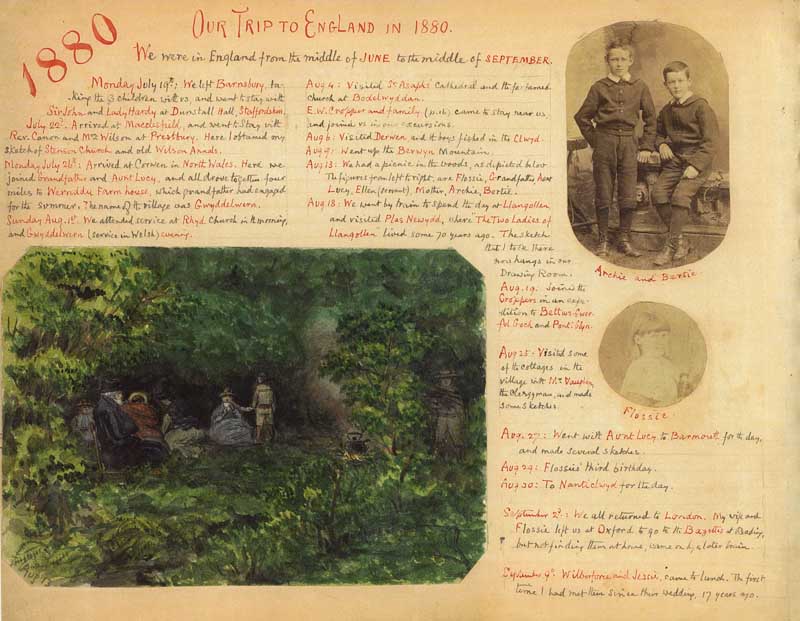 1880
OUR TRIP TO ENGLAND IN 1880.
We were in England from the middle of JUNE to the middle of SEPTEMBER.
Monday July 19th: We left Barnsbury, ta-
king the 3 children with us, and went to stay with
Sir John and Lady Hardy at Dunstall Hall, Staffordshire.
July 22d. Arrived at Macclesfield, and went to stay with
Rev. Canon and Mrs Wilson at Prestbury. Here I obtained my
sketch of Stenson Church and old Wilson Annals.
Monday July 26th: Arrived at Corwen in North Wales. Here we
joined Grandfather and Aunt Lucy, and all drove together four
miles to Wernddu Farm house, which grandfather had engaged
for the summer. The name of the village was Gwyddelwern.
Sunday Aug. 1st. We attended service at Rhyd Church in the morning,
and Gwyddelwern (service in Welsh) evening.
Aug 4: Visited St Asaphs' Cathedral and the far famed
church at Bodelwyddan.
E.W. Cropper and family (p.16) came to stay near us,
and joined us in our excursions.
Aug 6: Visited Derwen, and the boys fished in the Clwyd.
Aug 9: Went up the Berwyn Mountain.
Aug 13: We had a picnic in the woods, as depicted below
The figures from left to right, are Flossie, Grandfather, Aunt
Lucy, Ellen (servant), Mother, Archie, Bertie.
Aug 18: We went by train to spend the day at Llangollen
and visited Plas Newydd, where "The Two Ladies of
Llangollen" lived some 70 years ago. The sketch
that I took there
now hangs in our
Drawing Room.
Aug. 19. Joined the
Croppers in an expe-
dition to Bettws-Gwer-
fil Goch and Pont-Glyn.
Aug 25. Visited some
of the cottages in the
village with Mr Vaughan,
the Clergyman, and made
some sketches.
Aug. 27: Went with Aunt Lucy to Barmouth for the day,
and made several sketches.
Aug 29: Flossie's third birthday.
Aug 30: To Nantclwyd for the day.
September 2d: We all returned to London. My wife and
Flossie left us at Oxford to go to the Bazetts at Reading,
but not finding them at home, came on by a later train.
September 9th: Wilberforce and Jessie, came to lunch. The first
time I had met them since their wedding, 17 years ago.
Archie and Bertie
Flossie.